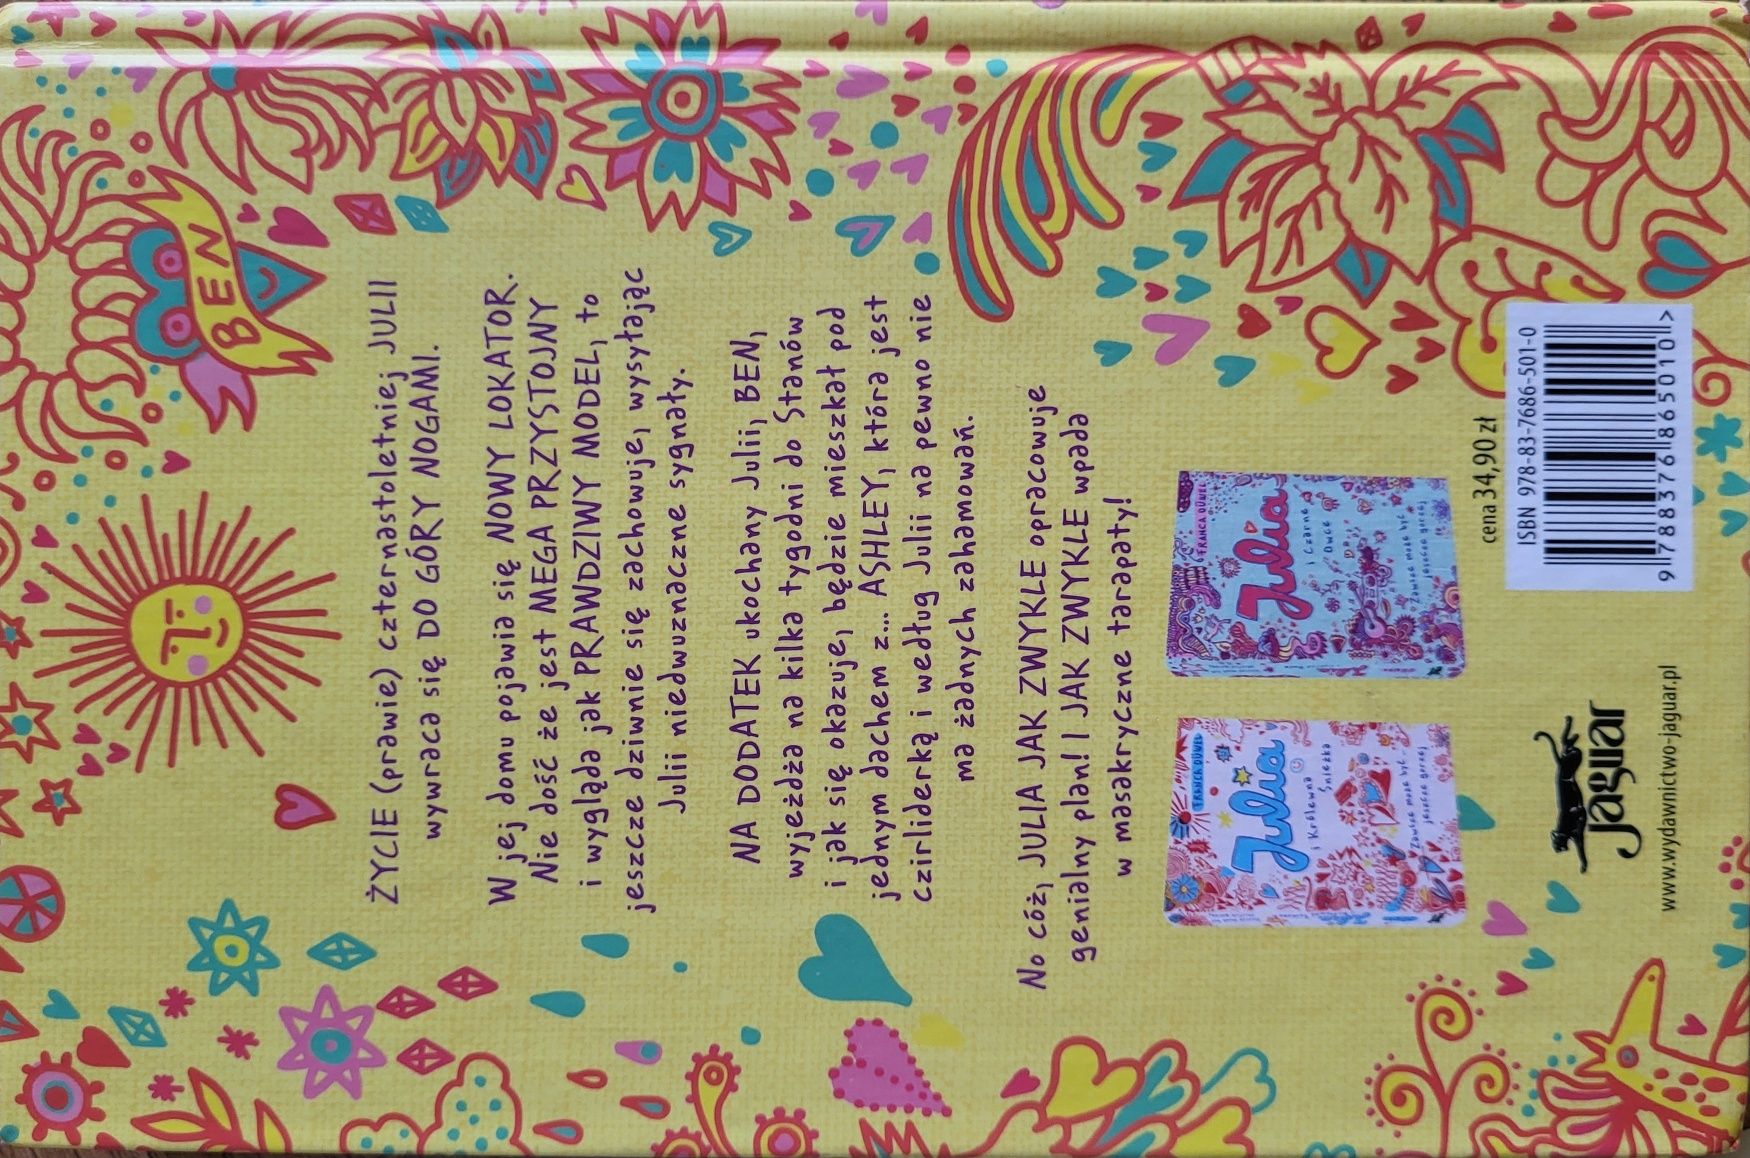 BEN
ŻYCIE (prawie) czternastoletniej JULII
wywraca się DO GÓRY NOGAMI.
W jej domu pojawia się NOWY LOKATOR.
Nie dość że jest MEGA PRZYSTOJNY
i wygląda jak PRAWDZIWY MODEL, to
jeszcze dziwnie się zachowuje, wysyłając
Julii niedwuznaczne sygnały.
NA DODATEK ukochany Julii, BEN,
wyjeżdża na kilka tygodni do Stanów
i jak się okazuje, będzie mieszkał pod
jednym dachem z... ASHLEY, która jest
czirliderką i według Julii na pewno nie
ma żadnych zahamowań.
No cóż, JULIA JAK ZWYKLE opracowuje
genialny plan! I JAK ZWYKLE wpada
w masakryczne tarapaty!
FRANCA DÜWEL
Julia
i Królewna
Śnieżka
Zawsze może być
jeszcze gorzej
FRANCA DÜWEL
Julia
i Czarne
Owce
Zawsze może być
jeszcze gorzej
cena 34,90 zł
ISBN 978-83-7686-501-0
9 788376 865010 >
Jaguar
www.wydawnictwo-jaguar.pl